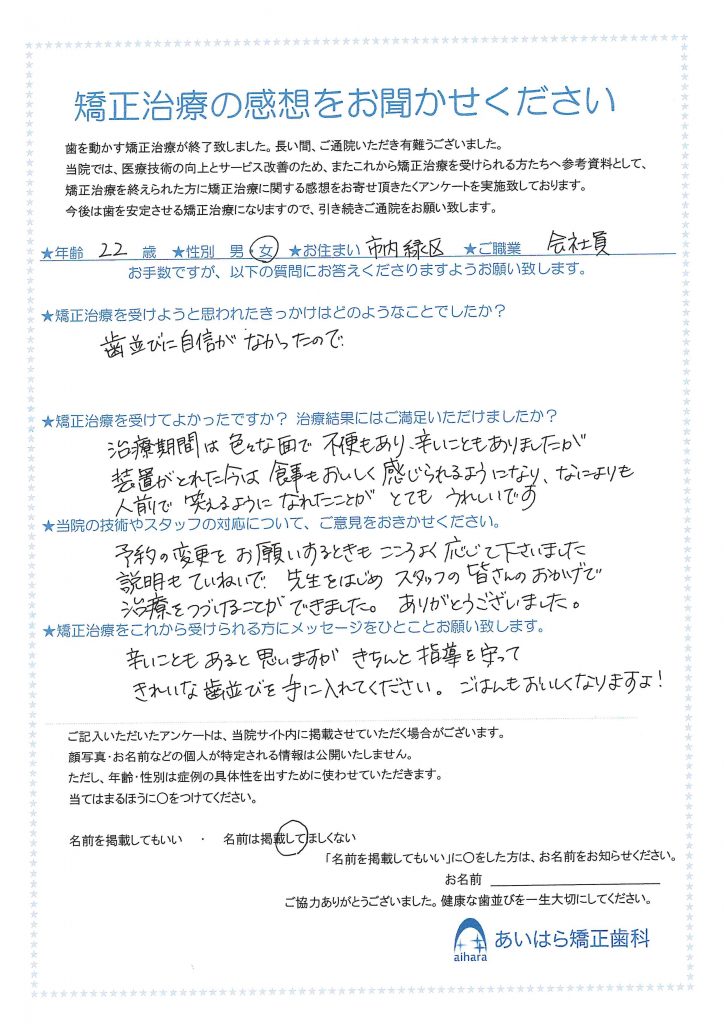 矯正治療の感想をお聞かせください
歯を動かす矯正治療が終了致しました。長い間、ご通院いただき有難うございました。
当院では、医療技術の向上とサービス改善のため、またこれから矯正治療を受けられる方たちへ参考資料として、
矯正治療を終えられた方に矯正治療に関する感想をお寄せ頂きたくアンケートを実施致しております。
今後は歯を安定させる矯正治療になりますので、引き続きご通院をお願い致します。
★年齢 22 歳 ★性別 男・女 ★お住まい 市内緑区 ★ご職業 会社員
お手数ですが、以下の質問にお答えくださりますようお願い致します。
★矯正治療を受けようと思われたきっかけはどのようなことでしたか?
歯並びに自信がなかったので
★矯正治療を受けてよかったですか? 治療結果にはご満足いただけましたか?
治療期間は色々な面で不便もあり、辛いこともありましたが
装置がとれた今は食事もおいしく感じられるようになり、なによりも
人前で笑えるようになれたことがとてもうれしいです
★当院の技術やスタッフの対応について、ご意見をおきかせください。
予約の変更をお願いするときもこころよく応じて下さいました
説明もていねいで、先生をはじめスタッフの皆さんのおかげで
治療をつづけることができました。ありがとうございました。
★矯正治療をこれから受けられる方にメッセージをひとことお願い致します。
辛いこともあると思いますがきちんと指導を守って
きれいな歯並びを手に入れてください。ごはんもおいしくなりますよ!
ご記入いただいたアンケートは、当院サイト内に掲載させていただく場合がございます。
顔写真・お名前などの個人が特定される情報は公開いたしません。
ただし、年齢・性別は症例の具体性を出すために使わせていただきます。
当てはまるほうに〇をつけてください。
名前を掲載してもいい ・ 名前は掲載してほしくない
「名前を掲載してもいい」に〇をした方は、お名前をお知らせください。
お名前
ご協力ありがとうございました。健康な歯並びを一生大切にしてください。
aihara あいはら矯正歯科